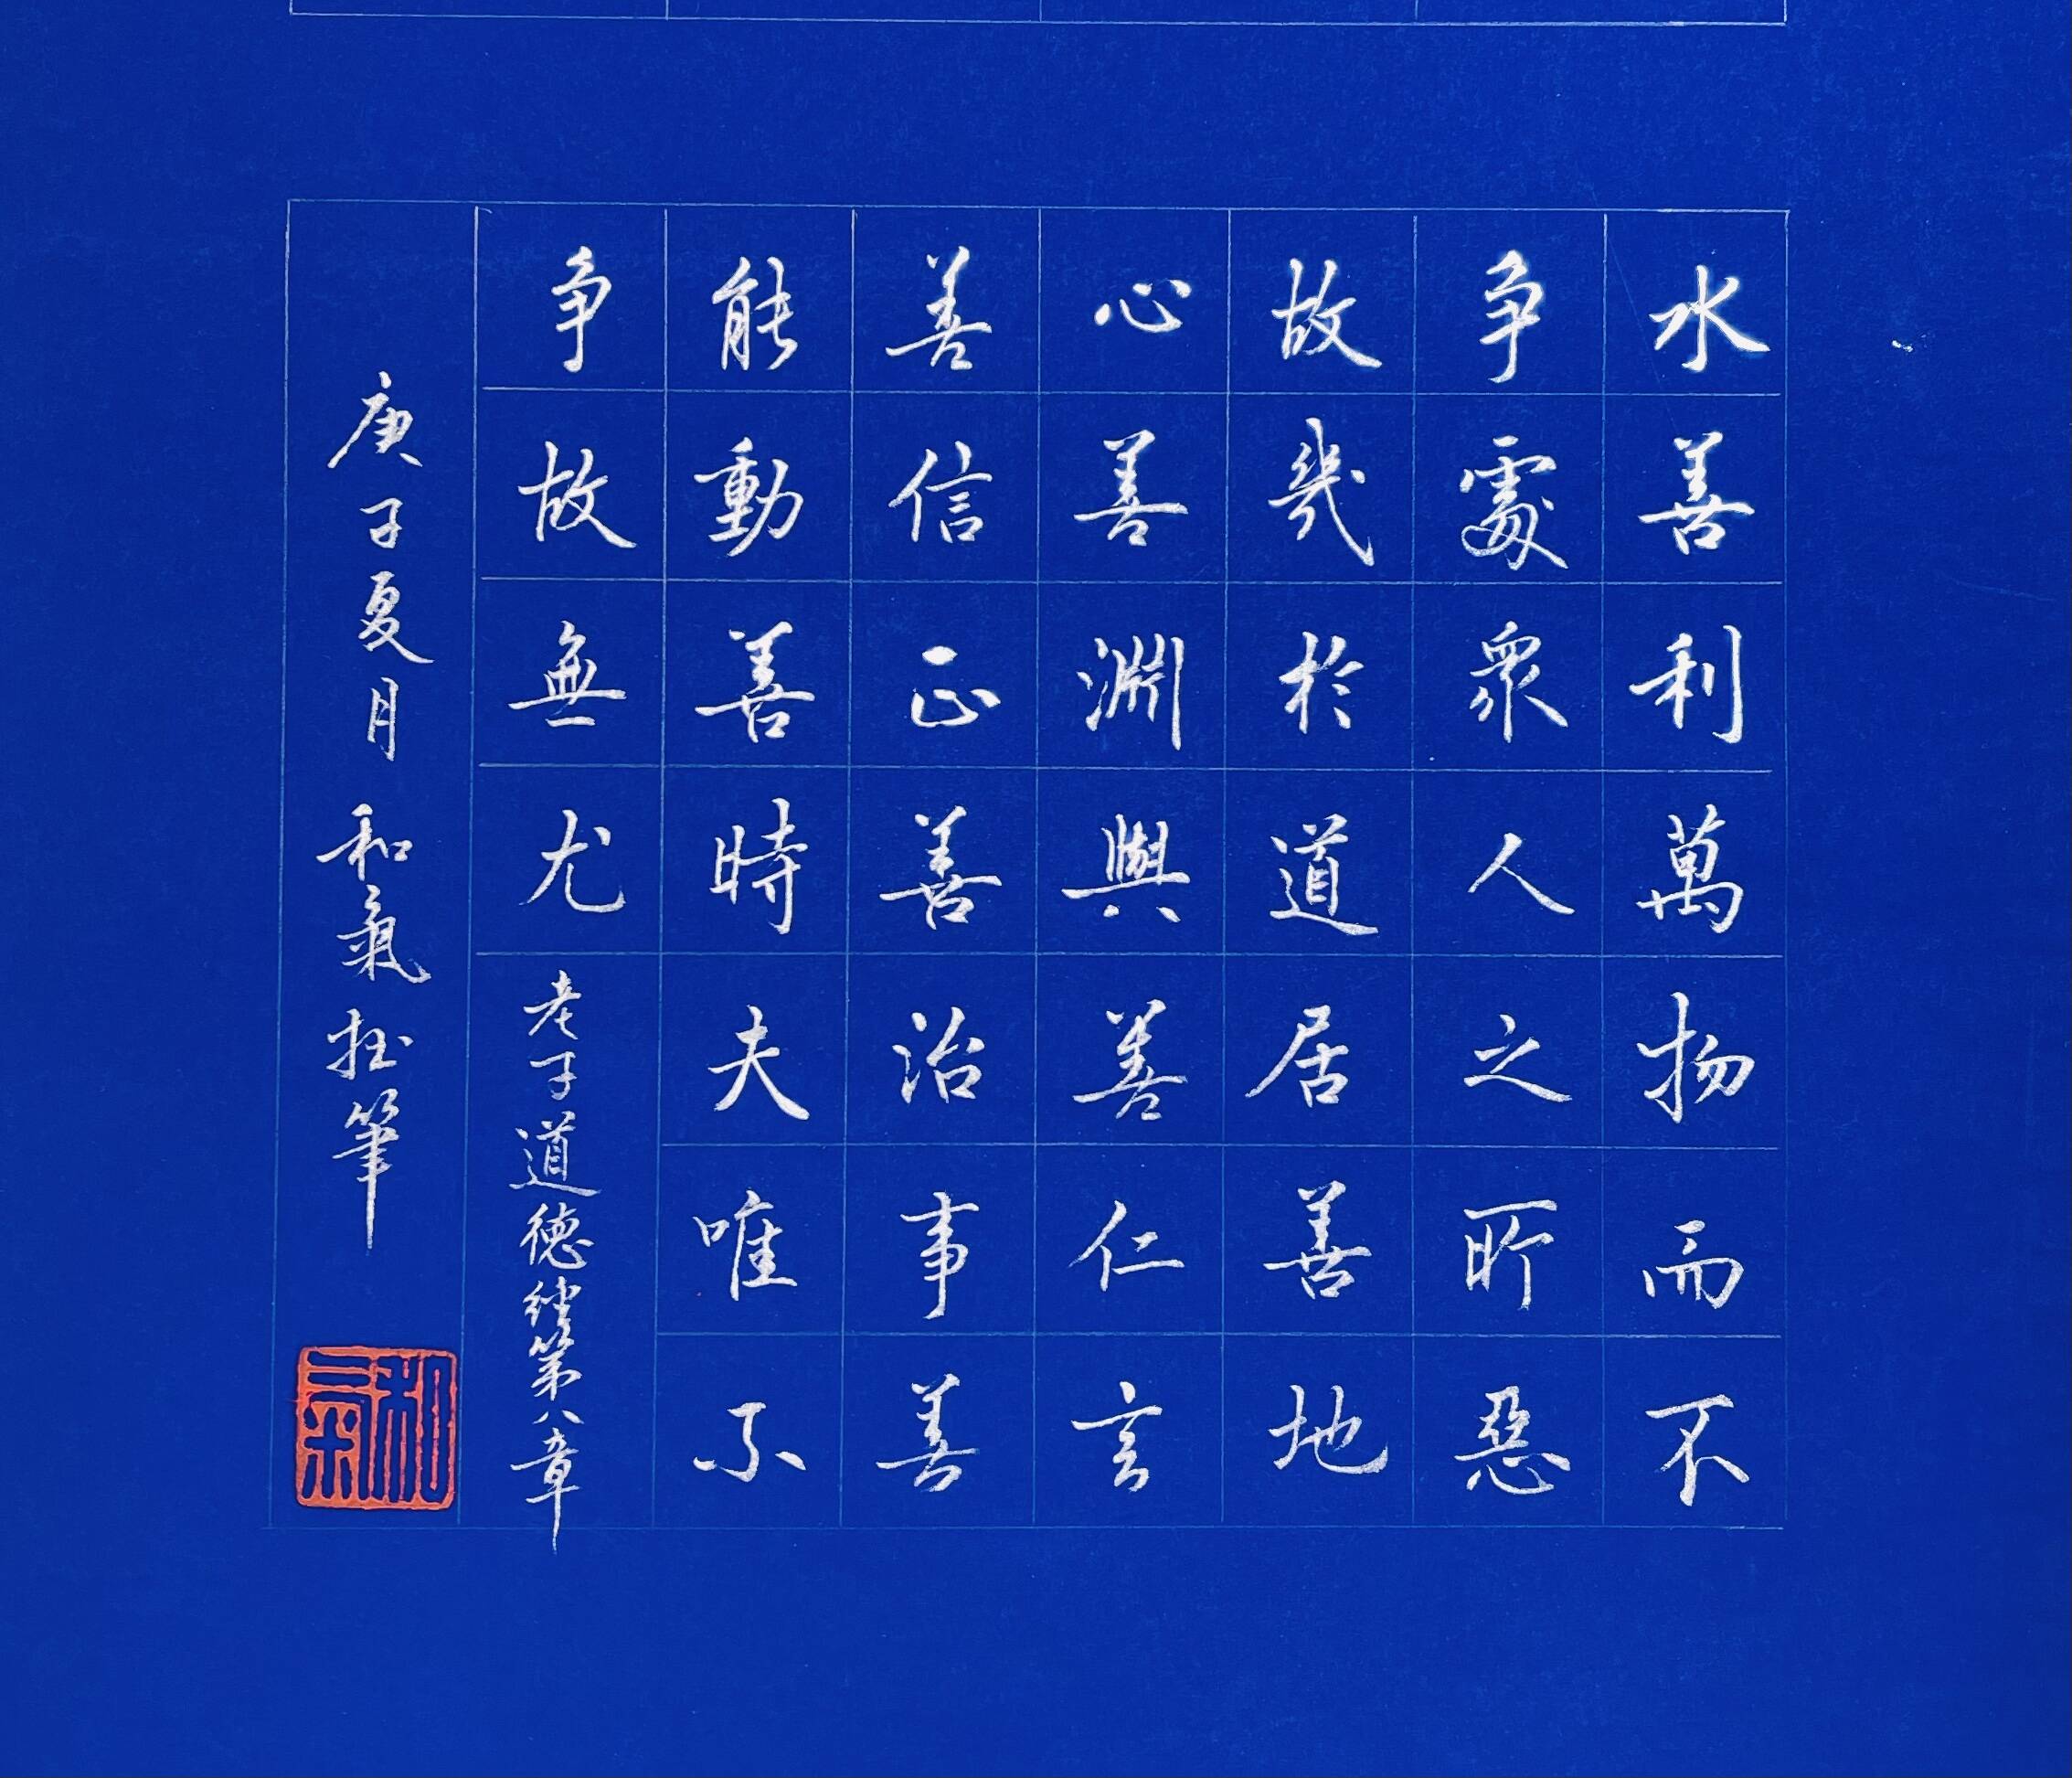 水善利萬物而不
争處眾人之所惡
故幾於道居善地
心善淵與善仁言
善信正善治事善
能動善時夫唯不
争故無尤
老子道德經第八章
庚子夏月 和氣拙筆
和氣